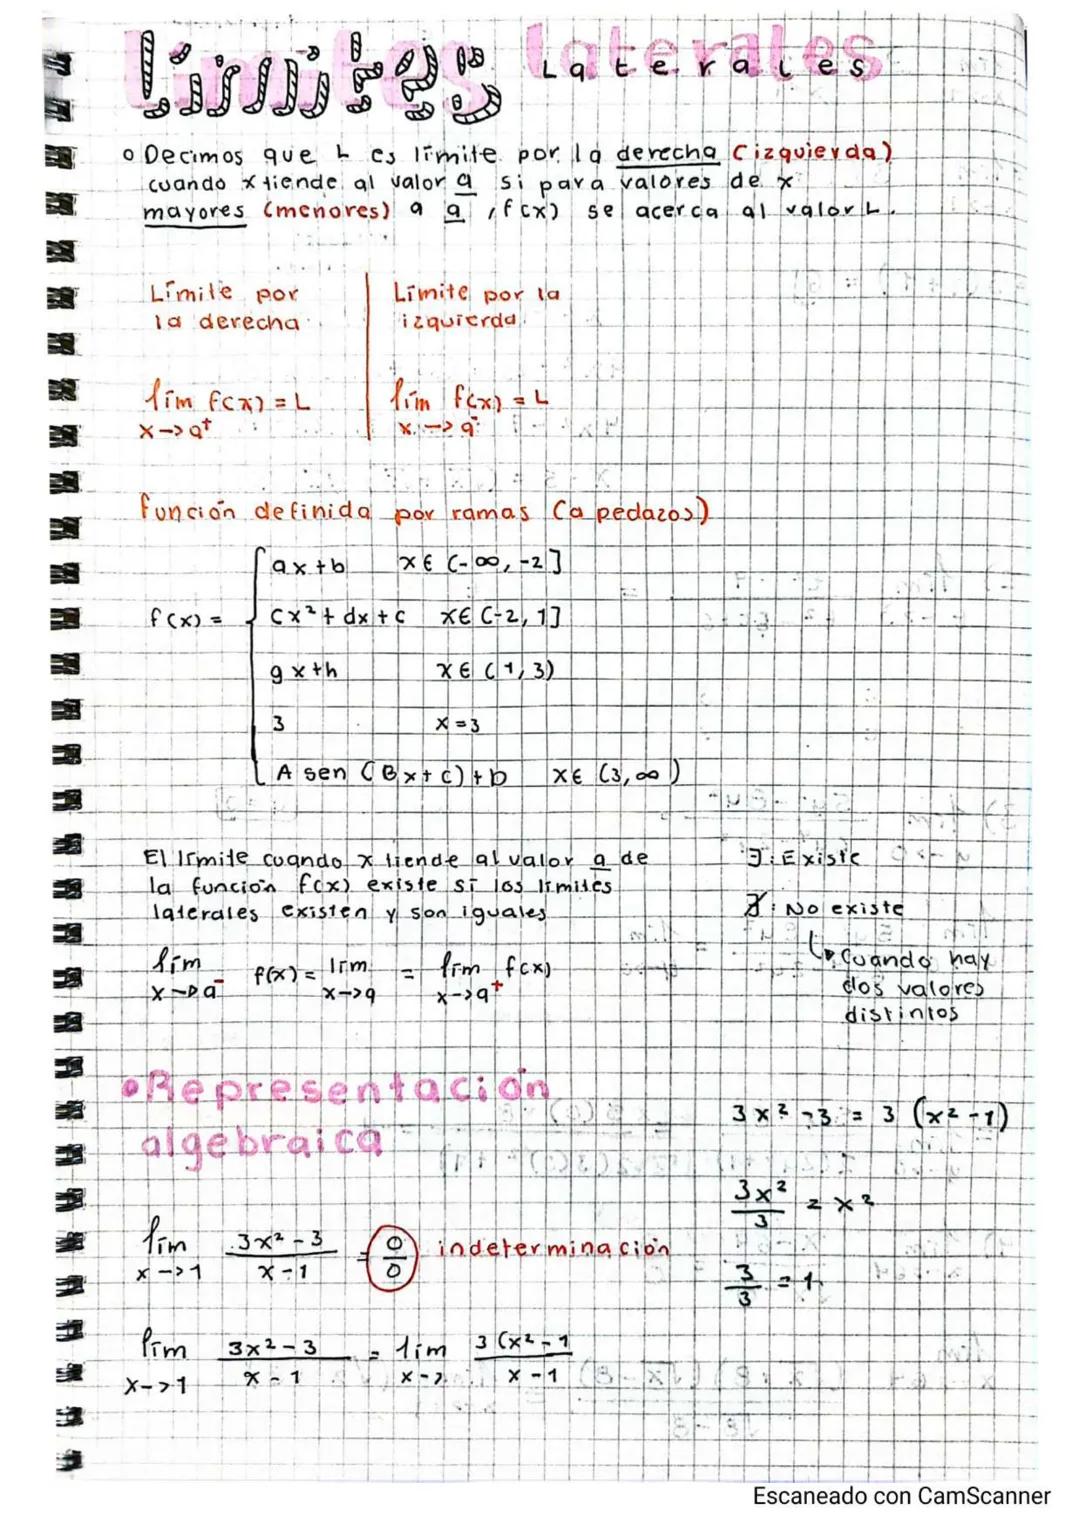 Límites Laterales
Decimos que L es límite por la derecha (izquierda)
cuando x tiende al valor a si para valores de x
mayores (menores) a a, f(x) se acerca al valor L.
Límite por
la derecha
Límite por la
izquierda
lím f(x) = L
x->a⁺
lím f(x) = L
x->a⁻
función definida por ramas (a pedazos)
ax+b x∈(-∞,-2]
f(x) = cx²+dx+c x∈(-2,1]
gx+h x∈(1,3)
3 x=3
A sen (Bx+c)+b x∈(3,∞)
El límite cuando x tiende al valor a de
la función f(x) existe si los límites
laterales existen y son iguales
∃: Existe
∄: No existe
Cuando hay
dos valores
distintos
lím f(x) = lím = lím f(x)
x->a⁻ x->a x->a⁺
Representación
algebraica
3x²-3 = 3(x²-1)
3x²/3 = x²
3/3 = 1
lím 3x²-3 / x-1 = 0/0 indeterminación
x->1
lím 3x²-3 / x-1 = lím 3(x²-1 / x-1
x->1
Escaneado con CamScanner